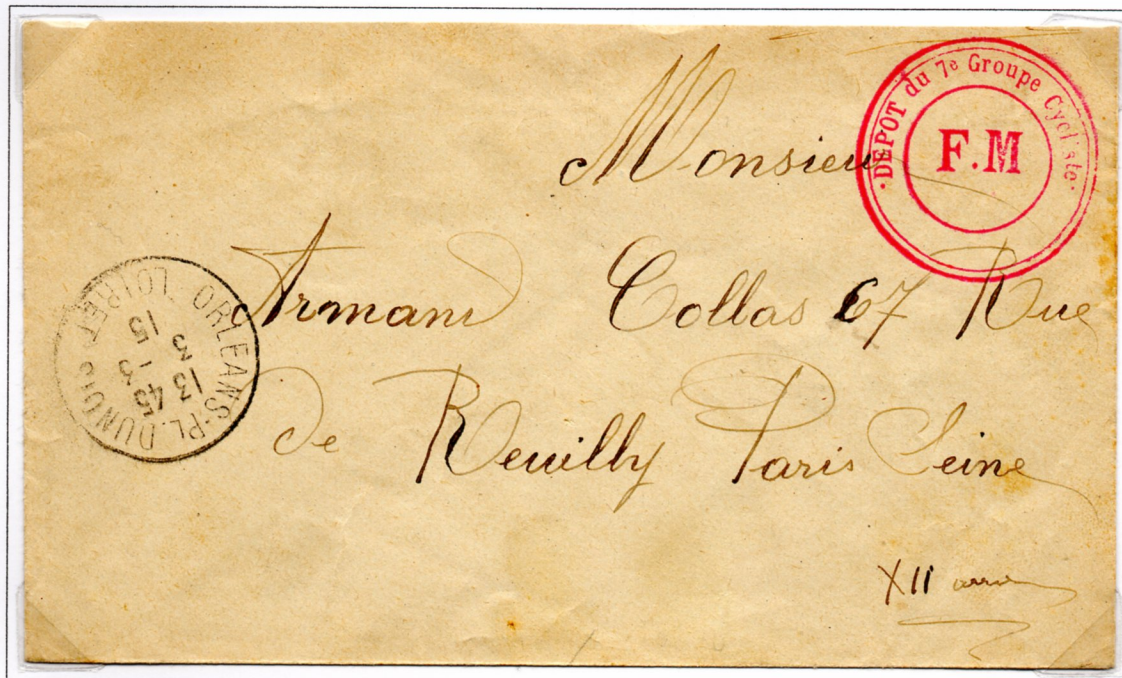 ·DEPOT du 7e Groupe Cycliste·
F.M
Monsieur
Armand Collas 67 Rue
de Reuilly Paris Seine
XII
ORLEANS-PL. DUNOIS LOIRET
13 45
3 - 3
15